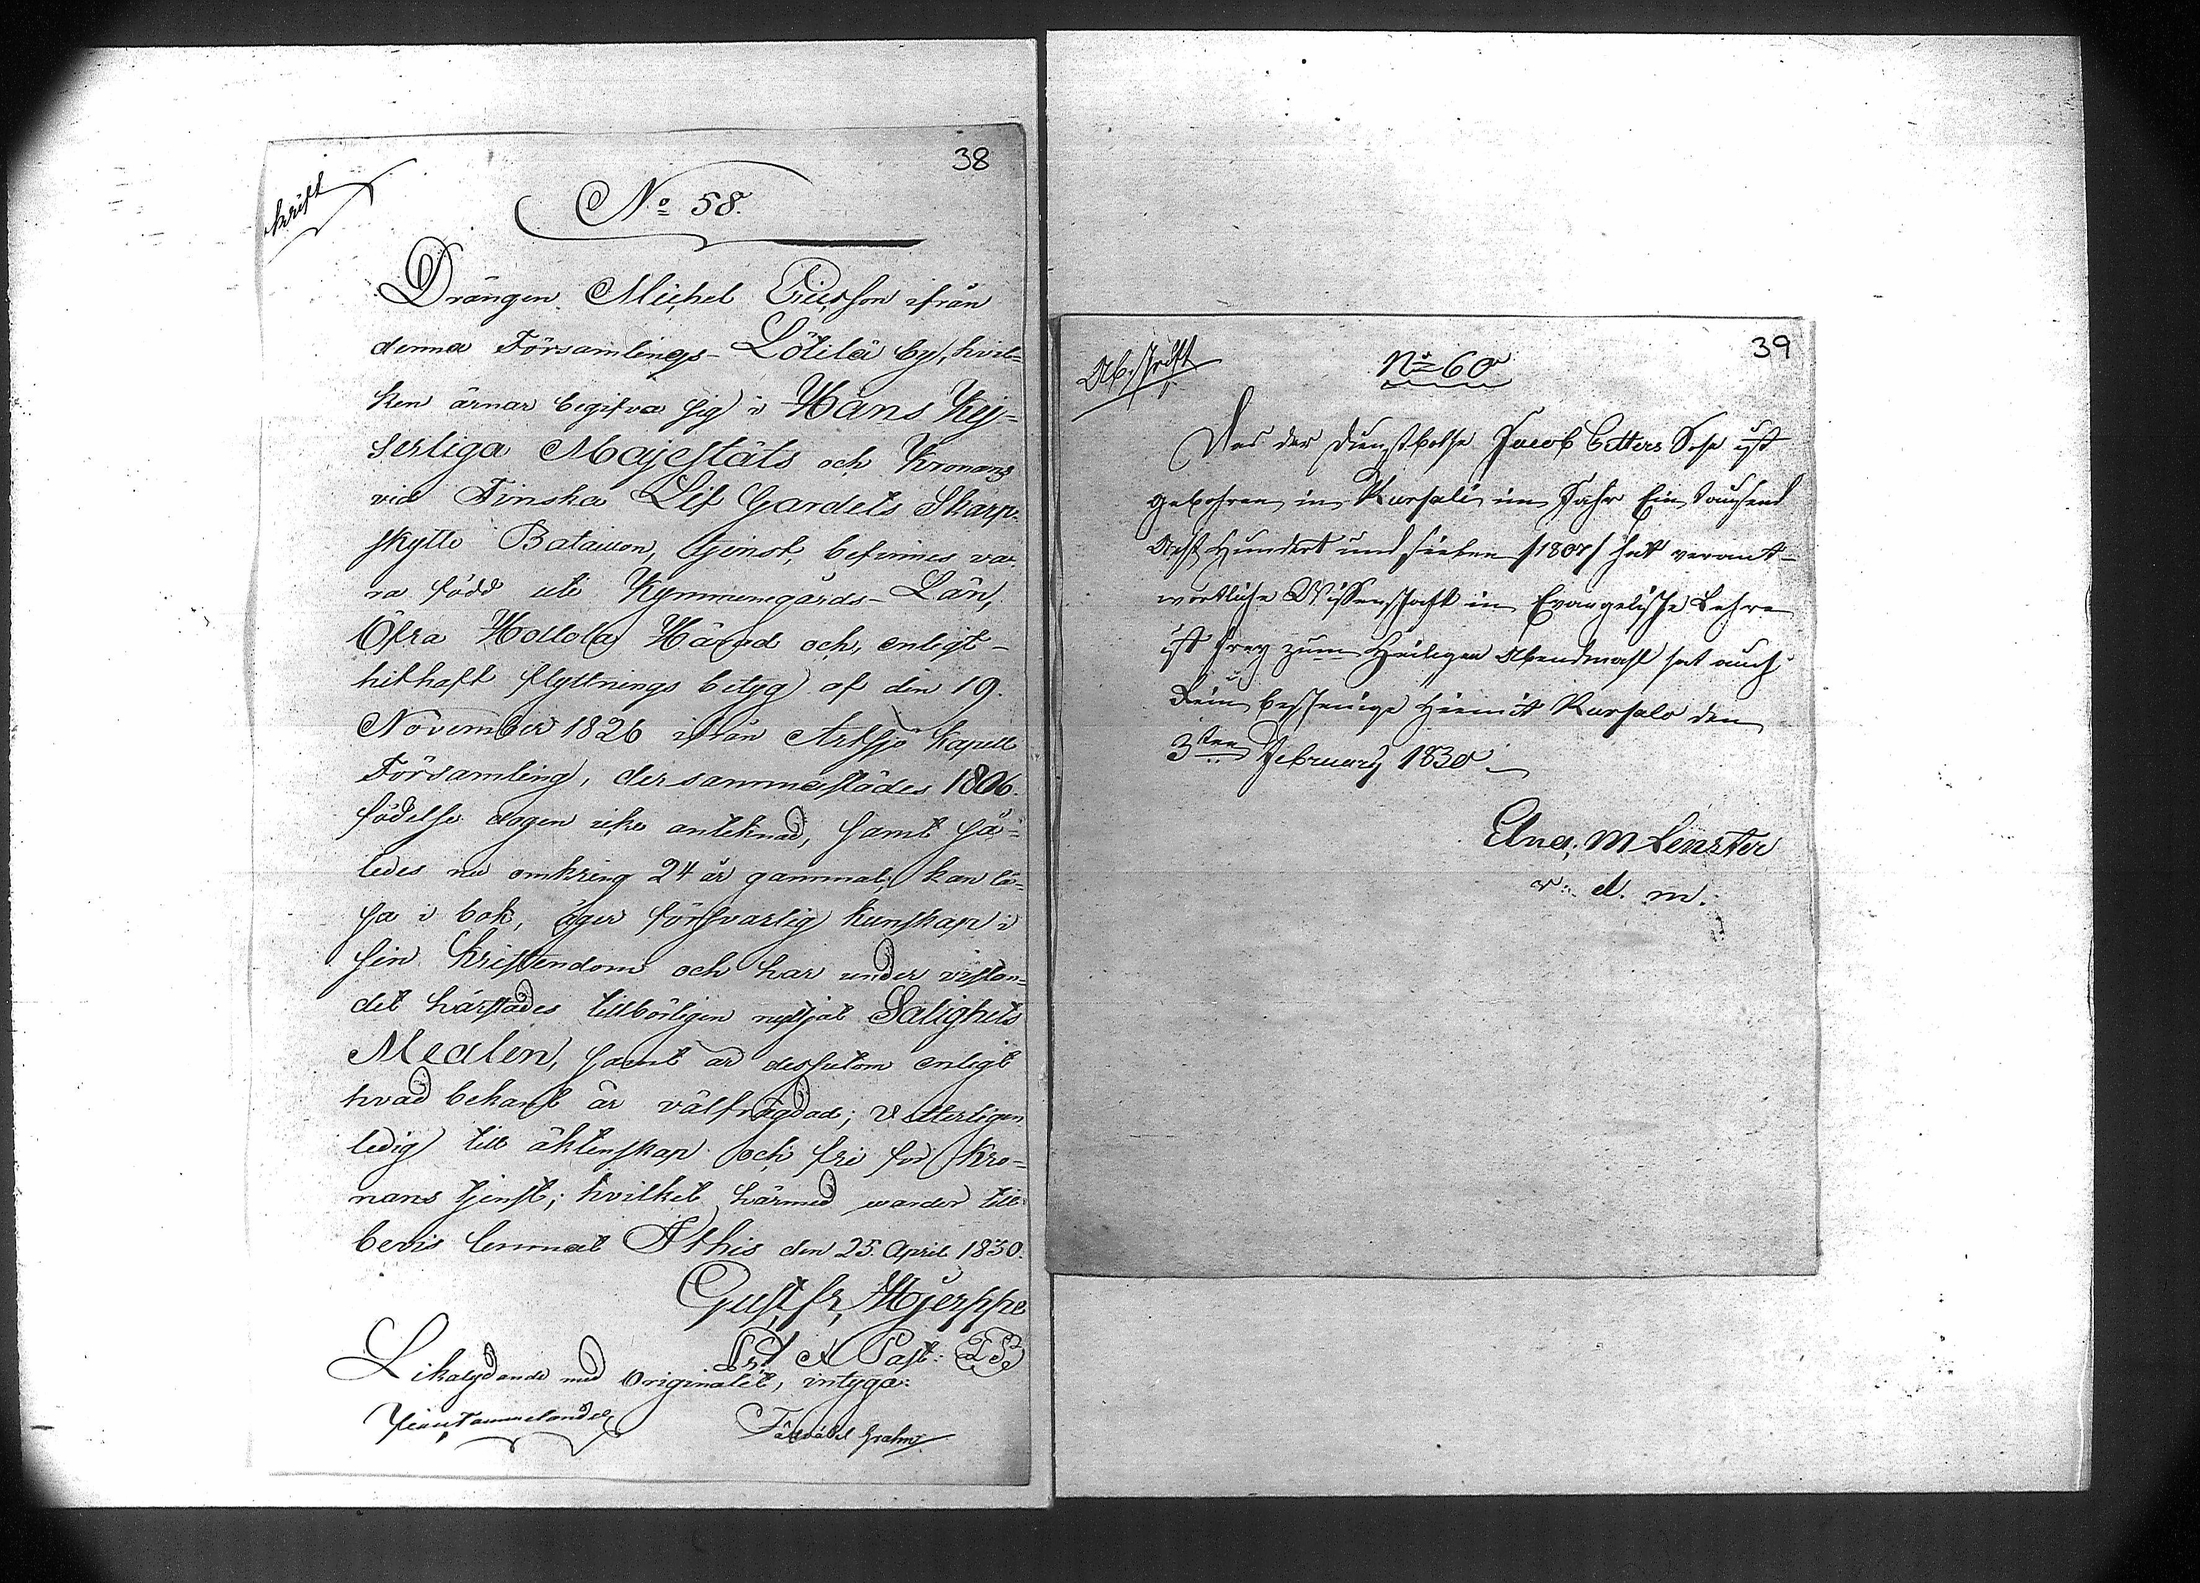 38
krift
No 58.
Drängen Michel Ericsson ifrån
denna Församlings Lötilä by, hvil=
ken ärnar begifva sig i Hans Kej=
serliga Majestäts och Kronans
vid Finska Lif Gardets Skarp-
skytte Bataillon, tjenst, befinnes va-
ra född uti Kymmenegårds Län,
Öfra Hollola Härad och, enligt
hithaft flyttnings betyg af den 19.
November 1826 ifrån Artsjö Kapell
Församling, dersammastädes 1806.
födelse dagen icke anteknad, samt så=
ledes nu omkring 24 år gammal; kan lä=
sa i bok, äger försvarlig kunskap i
sin Kristendom och har under vistan=
det härstädes tillbörligen nyttjat Salighets
Medlen, samt är dessutom enligt
hvad bekant är välfrägdad; Vetterligen
ledig till äktenskap och fri för Kro=
nans tjenst; hvilket härmed warder till
bevis lemnat Ithis den 25 April 1830.
Gust. fr. Hjerppe
Past: LS
Likalydande med Originalet, intygar
Fältväbel Grahn
39
Abschrift
No 60
Das der Dienstbothe Jacob Petters Sohn ist
gebohren in Kursali im Jahr Ein tausend
Acht Hundert und sieben /1807/ hat verant-
wortliche Wissenschaft in Evangelische Lehre
ist frey zum Heiligen Abendmahl hat auch
bescheinige Hiemit Kursalo den
3ten February 1830
And; M Lenzter
v. d. m.